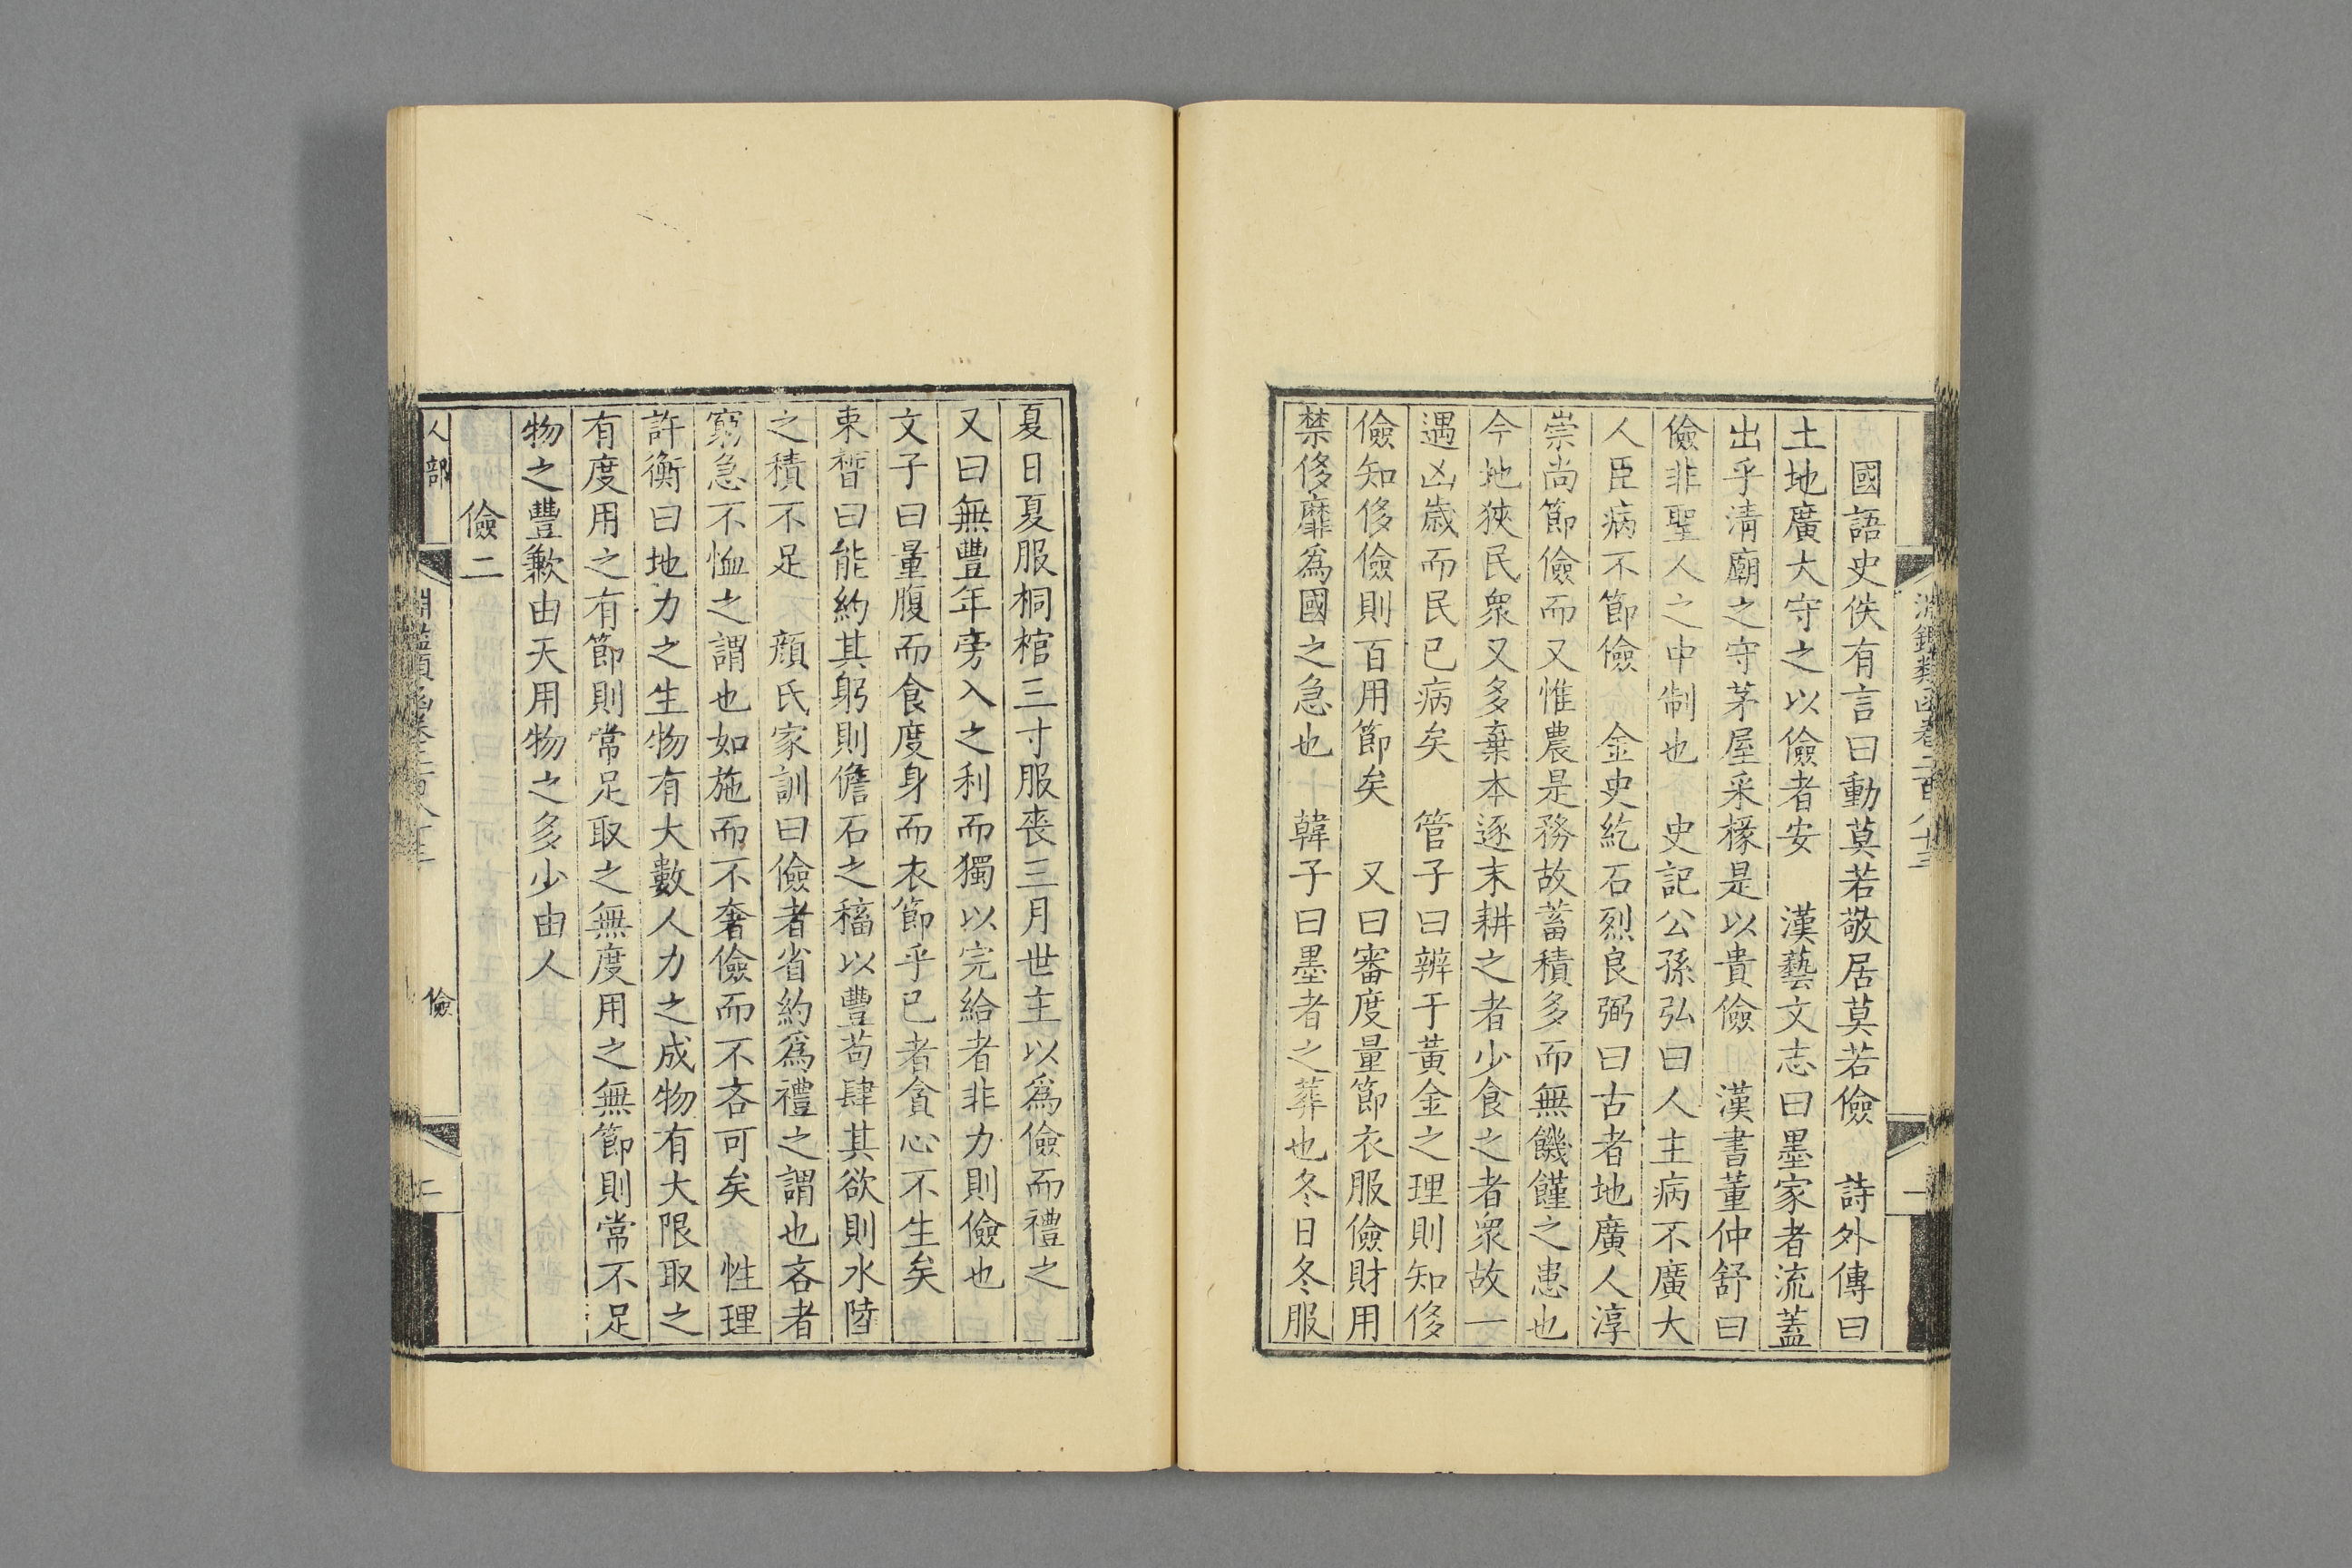 國語史佚有言曰動莫若敬居莫若儉　詩外傳曰
土地廣大守之以儉者安　漢藝文志曰墨家者流蓋
出乎清廟之守茅屋采椽是以貴儉　漢書董仲舒曰
儉非聖人之中制也　史記公孫弘曰人主病不廣大
人臣病不節儉　金史紇石烈良弼曰古者地廣人淳
崇尚節儉而又惟農是務故蓄積多而無饑饉之患也
今地狹民衆又多棄本逐末耕之者少食之者衆故一
遇凶歲而民已病矣　管子曰辨于黃金之理則知侈
儉知侈儉則百用節矣　又曰審度量節衣服儉財用
禁侈靡爲國之急也　韓子曰墨者之葬也冬日冬服
夏日夏服桐棺三寸服喪三月世主以爲儉而禮之
又曰無豐年旁入之利而獨以完給者非力則儉也
文子曰量腹而食度身而衣節乎已者貪心不生矣
束晳曰能約其躬則儋石之穡以豐苟肆其欲則水陸
之積不足　顏氏家訓曰儉者省約爲禮之謂也吝者
窮急不恤之謂也如施而不奢儉而不吝可矣　性理
許衡曰地力之生物有大數人力之成物有大限取之
有度用之有節則常足取之無度用之無節則常不足
物之豐歉由天用物之多少由人
儉二
人部
儉
二